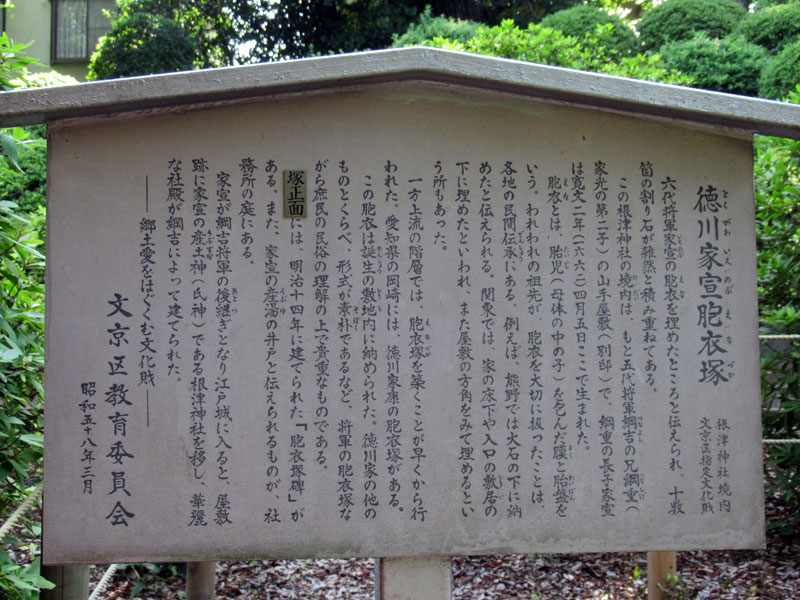 徳川家宣胞衣塚
根津神社境内
文京区指定文化財
六代将軍家宣の胞衣を埋めたところと伝えられ、十数
箇の割り石が雑然と積み重ねてある。
この根津神社の境内は、もと五代将軍綱吉の兄綱重(
家光の第二子)の山手屋敷(別邸)で、綱重の長子家宣
は寛文二年(一六六二)四月五日ここで生まれた。
胞衣とは、胎児(母体の中の子)を包んだ膜と胎盤を
いう。われわれの祖先が、胞衣を大切に扱ったことは
各地の民間伝承にある。例えば、熊野では大石の下に納
めたと伝えられる。関東では、家の床下や入口の敷居の
下に埋めたといわれ、また屋敷の方角をみて埋めるとい
う所もあった。
一方上流の階層では、胞衣塚を築くことが早くから行
われた。愛知県の岡崎には、徳川家康の胞衣塚がある。
この胞衣は誕生の敷地内に納められた。徳川家の他の
ものとくらべ、形式が素朴であるなど、将軍の胞衣塚な
がら庶民の民俗の理解の上で貴重なものである。
塚正面には、明治十四年に建てられた「胞衣塚碑」が
ある。また、家宣の産湯の井戸と伝えられるものが、社
務所の庭にある。
家宣が綱吉将軍の後継ぎとなり江戸城に入ると、屋敷
跡に家宣の産土神(氏神)である根津神社を移し、華麗
な社殿が綱吉によって建てられた。
――郷土愛をはぐくむ文化財――
文京区教育委員会
昭和五十八年三月